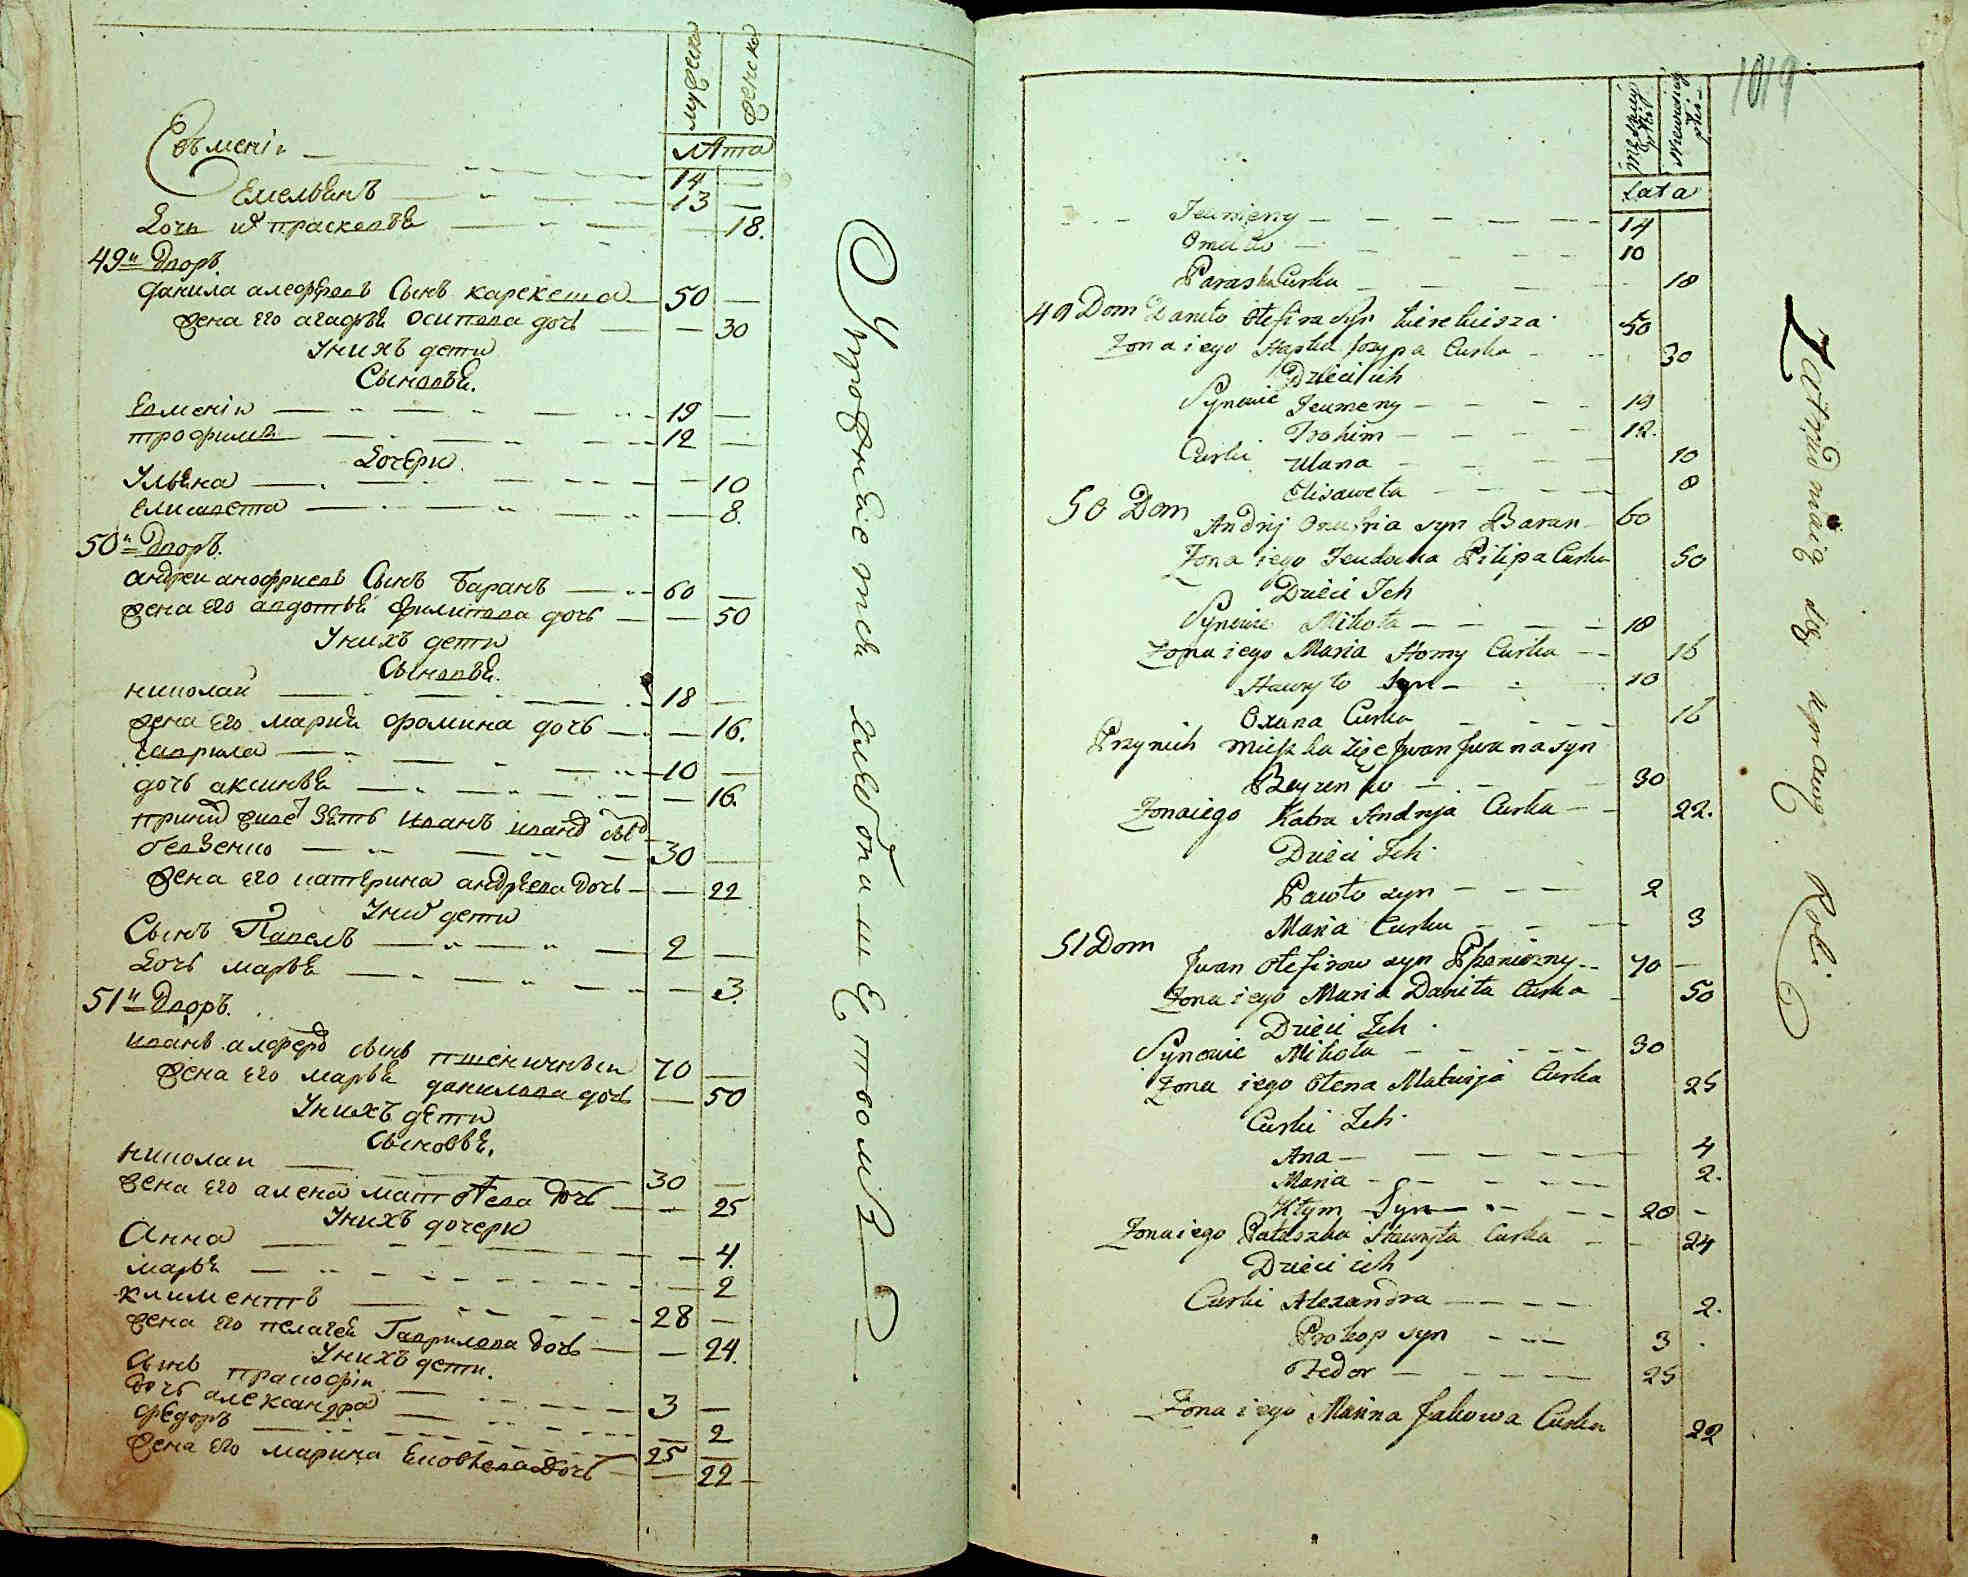 мужеска
женска
лѣта
Евмени 14
Емельянъ 13
Дочь их праскевья 18.
49й дворъ.
данила алеферовъ Сынъ карекеша 50
жена его агафья осипова дочь 30
У нихъ дети
Сыновья.
Евмени 19
трофимъ 12
Дочери.
Ульяна 10
Елисавета 8.
50й дворъ.
андреи анофриевъ Сынъ баранъ 60
жена его авдотья филипова дочь 50
У нихъ дети
Сыновья.
николаи 18
жена его мария фомина дочь 16.
гаврила 10
дочь аксинья 16.
при них живе зеть иванъ иванов сынъ
безенко 30
жена его катерина андреева дочь 22
У них дети
Сынъ Павелъ 2
Дочь марья 3.
51й дворъ.
иванъ алферов сынъ пшеничныи 70
жена его марья данилова дочь 50
У нихъ дети
Сыновья.
николаи 30
жена его алена матвѣева дочь 25
У нихъ дочери
Анна 4.
марья 2
климентъ 28
жена его пелагея Гаврилова дочь 24.
У нихъ дети.
сынъ пракофiи 3
дочь александра 2
федоръ 25
жена его марина Яковлева дочь 22
Упражняется хлебопашеством
1019
Męskiej płci
Niewieściej płci
Lata
Jeumieny 14
Omelko 10
Paraska Curka 18
49 Dom Daniło Olefira Syn Kerekiesza 50
Zona iego Hapka Jozypa Curka 30
Dzieci ich
Synowie Jeumeny 19
Trohim 12.
Curki Ulana 10
Elisaweta 8
50 Dom
Andrij Onufria syn Baran 60
Zona iego Jeudocha Pilipa Curka 50
Dzieci Ich
Synowie Mikoła 18
Zona iego Maria Homy Curka 16
Hawryło Syn 10
Oxana Curka 16
Przy nich mieszka Zięc Jwan Jwana syn
30
Zona iego Katra Andryja Curka 22.
Dzieci Ich
Pawło syn 2
Maria Curka 3
51 Dom
Jwan Olefirow syn Pszeniczny 70
Zona iego Maria Daniła Curka 50
Dzieci Ich
Synowie Mikoła 30
Zona iego Olena Matwija Curka 25
Curki Ich
Ana 4
Maria 2.
Kłym Syn 28
Zona iego Pałaszka Hawryła Curka 24
Dzieci ich
Curki Alexandra 2.
Prokop syn 3
Fedor 25
Zona iego Marina Jakowa Curka 22
Zatrudniaią się uprawą Roli